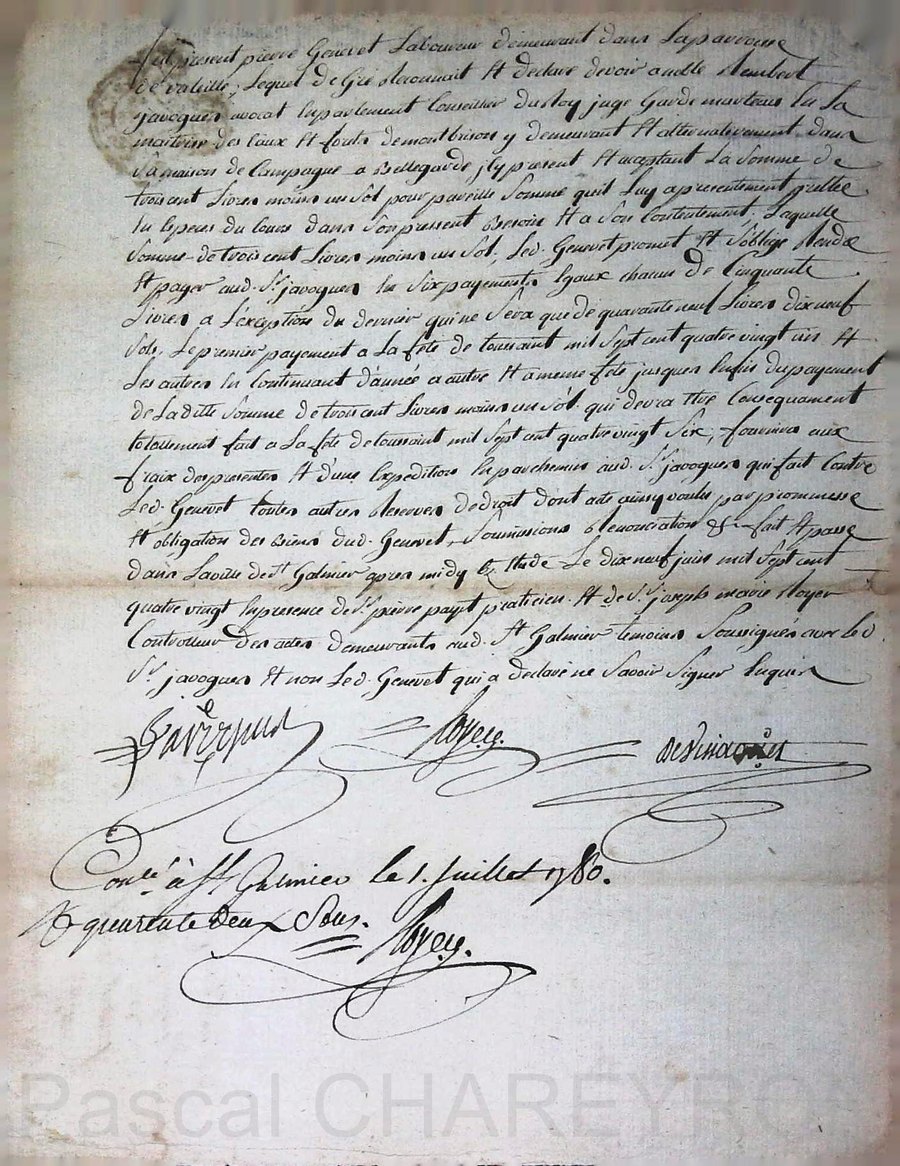 fut present pierre Genevet Laboureur demeurant dans La parroisse
de valeille, Lequel de Gré Reconnait Et declare devoir a noble Rembert
javogues avocat En parlement Conseiller du Roy juge Garde marteau En La
maitrise des Eaux Et forets de montbrison y demeurant Et alternativement dans
Sa maison de Campagne a Bellegarde, jcy present Et acceptant La Somme de
trois cent Livres moins un Sol pour pareille Somme qu'il Luy a presentement prettée
En Especes du Cours dans Son pressent Besoin Et a Son Contentement. Laquelle
Somme de trois cent Livres moins un Sol, Led. Genevet promet Et S'oblige Rendre
Et payer aud. Sr. javogues En Six payements Egaux chacun de Cinquante
Livres a L'éxception du dernier qui ne Sera que de quarante neuf Livres dix neuf
Sols, Le premier payement a La fête de toussaint mil Sept cent quatre vingt un Et
Les autres En Continuant d'année a autre Et a meme fête jusques Enfin du payement
de La ditte Somme de trois cent Livres moins un Sol. qui devra Etre Consequament
totallement fait a La fête de toussaint mil Sept cent quatre vingt Six, fournira aux
fraix des presentes Et d'une Expedition En parchemin aud. Sr. javogues qui fait Contre
Led. Genevet toutes autres Reserves de droit dont acte ainsy voulu par prommesse
Et obligation des Biens dud. Genevet, Soumissions Renonciation &c. fait Et passé
dans La ville de St. Galmier apres midy Etude Le dix neuf juin mil Sept cent
quatre vingt En presence de Sr. pierre payet praticien Et de Sr. joseph marie Royer
Controlleur des actes demeurants aud. St. Galmier temoins Soussignés avec Led.
Sr. javogues Et non Led. Genevet qui a declaré ne Savoir Signer Enquis
Royer.
Conlé. à St. Galmier le 1. Juillet 1780.
quarente deux Sous. Royer.
Pascal CHAREYRON